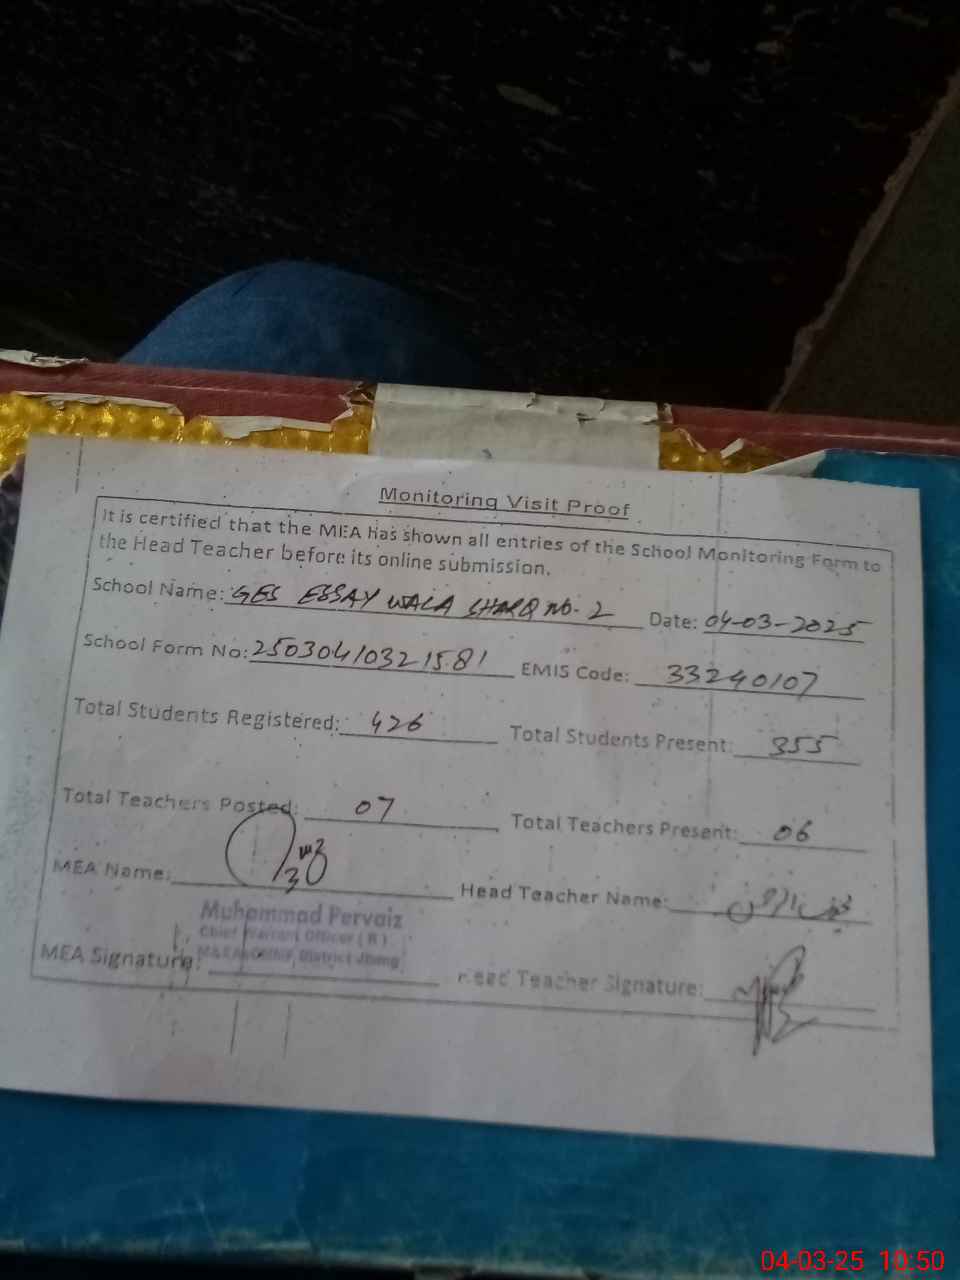 Monitoring Visit Proof
It is certified that the MEA has shown all entries of the School Monitoring Form to
the Head Teacher before its online submission.
School Name: GES ESSAY WALA SHARQ NO. 2 Date: 04-03-2025
School Form No: 25030410321581 EMIS Code: 33240107
Total Students Registered: 426 Total Students Present: 355
Total Teachers Posted: 07 Total Teachers Present: 06
MEA Name: Head Teacher Name:
Muhammad Pervaiz
Chief Warrant Officer (R)
District Jhang
MEA Signature: Head Teacher Signature:
04-03-25 10:50